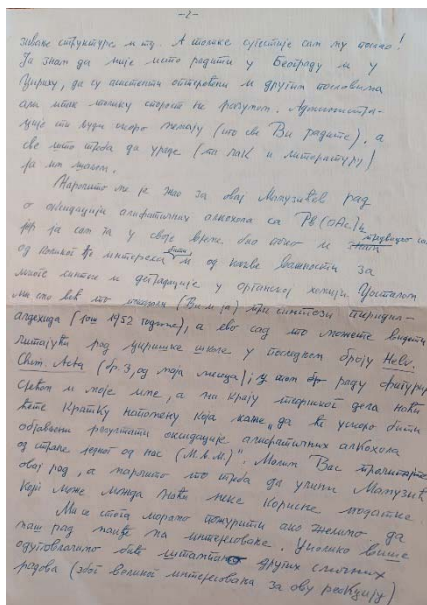 -2-
зивање структуре и тд. А толике сугестије сам му послао!
Ја знам да није лако радити у Београду и у
Цириху, да су асистенти оптерећени и другим пословима
али ипак толику спорост не разумем.
ције ти људи скоро немају (то све Ви радите), а
све што треба да ураде (па чак и литературу)
ја им шаљем.
Нарочито ми је жао за овај Мамузићев рад
о оксидацији алифатичних алкохола са Pb(OAc)4
јер ја сам га у своје време био и
од великог је интереса и од велике важности за
многе синтезе и деградације у органској хемији. Уосталом
ми смо већ то (Ви и ја) при синтези
алдехида (још 1952 године), а ево сад то можете видети
читајући рад циришке школе у последњем броју Helv.
Chim. Acta (бр. 3, од маја месеца); у том раду фигурира
срећом и моје име, а на крају теориског дела наћи
ћете кратку напомену која каже „да ће ускоро бити
објављени резултати оксидације алифатичних алкохола
од стране једног од нас (М.Љ.М.)". Молим Вас прочитајте
овај рад, а нарочито то треба да учини Мамузић
који може можда наћи неке корисне податке.
Ми се стога морамо пожурити ако желимо да
наш рад наиђе на интересовање. Уколико више
одуговлачимо биће других сличних
радова (због великог интересовања за ову реакцију)